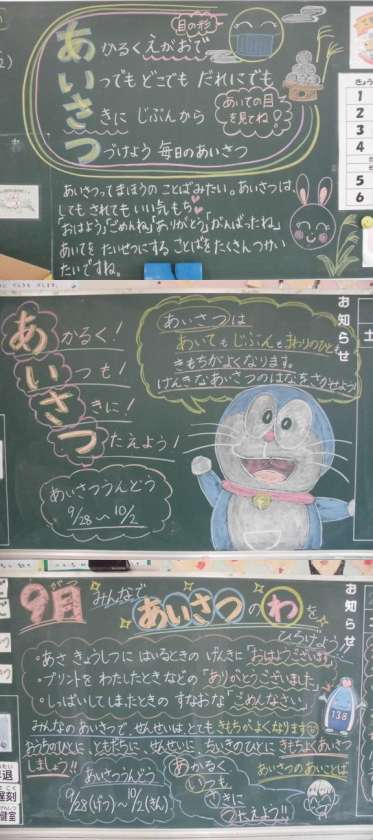 目の形
あかるくえがおで
いつでも どこでも だれにでも
さきに じぶんから
あいての目を見てね!
つづけよう 毎日のあいさつ
あいさつってまほうの ことばみたい。あいさつは、
しても されても いい気もち
「おはよう」「ごめんね」「ありがとう」「がんばったね」
あいてを たいせつにする ことばを たくさん つかい
たいですね。
きょう
1
2
3
4
5
6
あかるく!
いつも!
さきに!
つたえよう!
あいさつうんどう
9/28〜10/2
あいさつは
あいても じぶんも まわりのひとも
きもちがよくなります。
げんきなあいさつのはなをさかせよう!
お知らせ
土
9月
がつ
みんなで
あいさつのわを
ひろげよう!!
お知らせ
・あさ きょうしつに はいるときの げんきに「おはようございます」
・プリントを わたしたときなどの「ありがとうございました」
・しっぱいしてしまったときの すなおな「ごめんなさい」
みんなのあいさつで、せんせいは、とても きもちがよくなります
おうちのひとに、ともだちに、せんせいに、ちいきのひとに きもちよくあいさつ
しましょう!!
あいさつうんどう
9/28(げつ)〜10/2(きん)
あかるく
いつも
さきに
つたえよう!!
あいさつのあいことば
138
早退
遅刻
健室